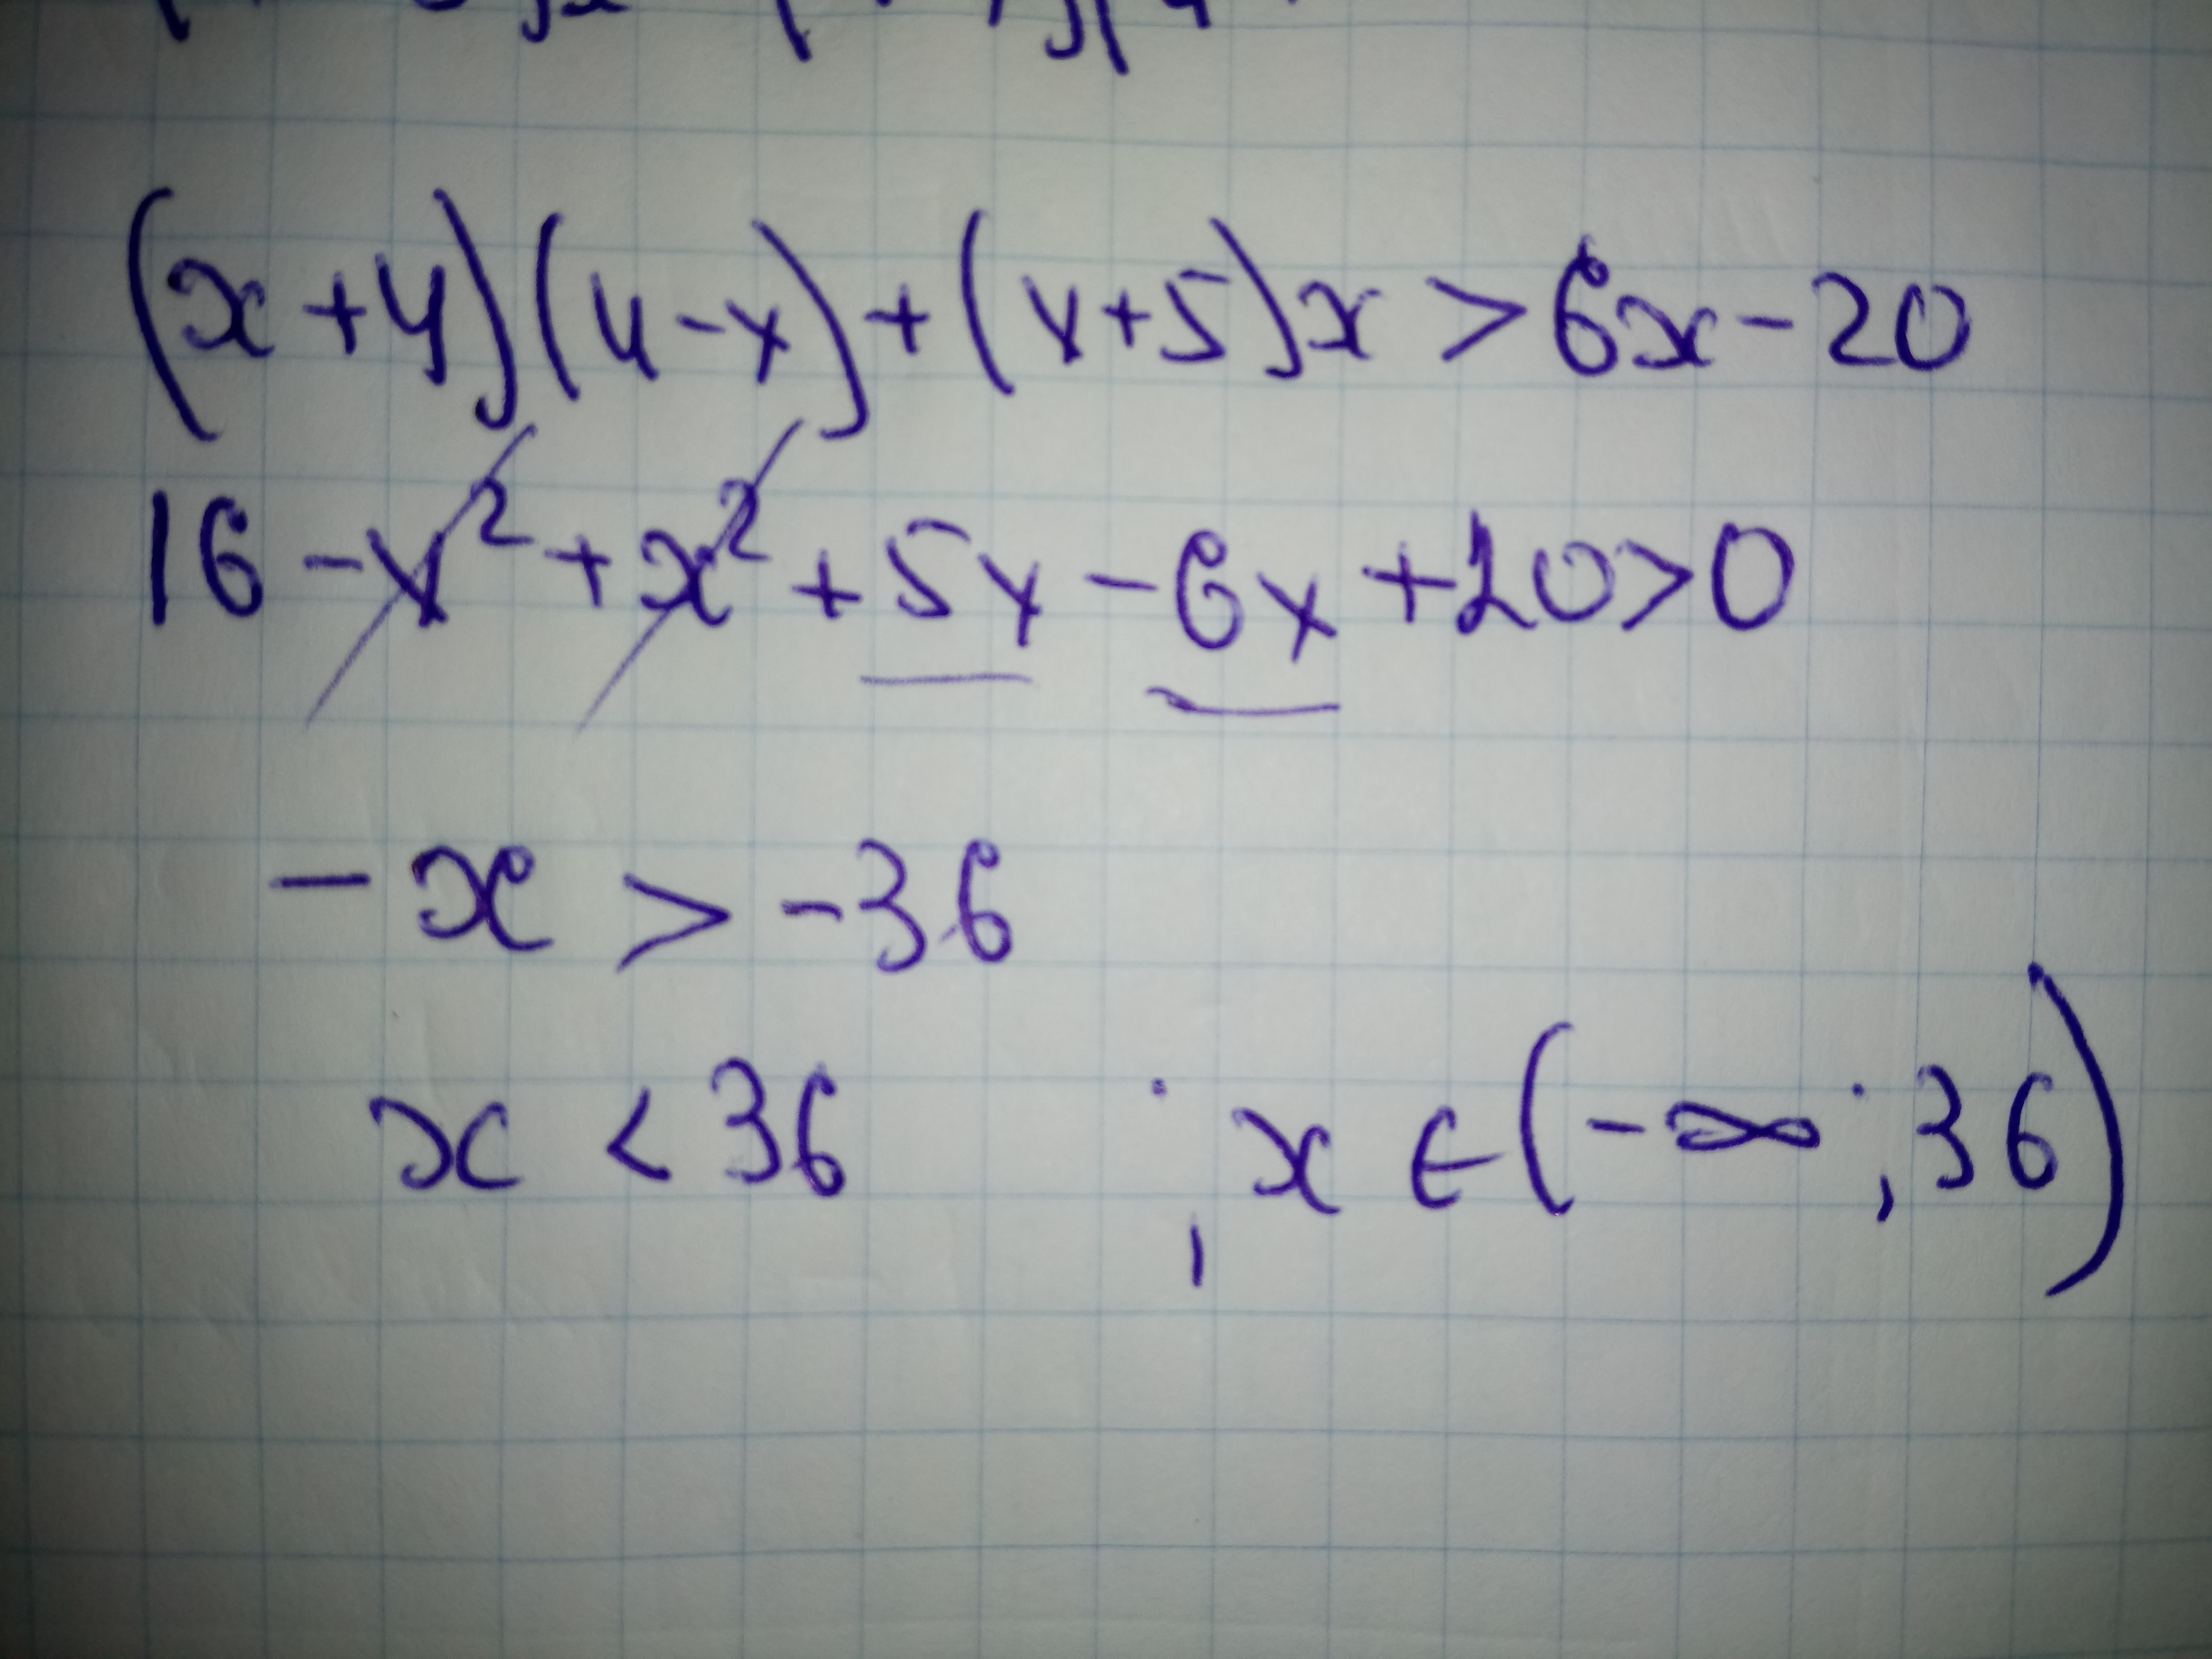 (x+4)(4-x)+(x+5)x>6x-20
16-x²+x²+5x-6x+20>0
-x>-36
x<36 ; x∈(-∞;36)